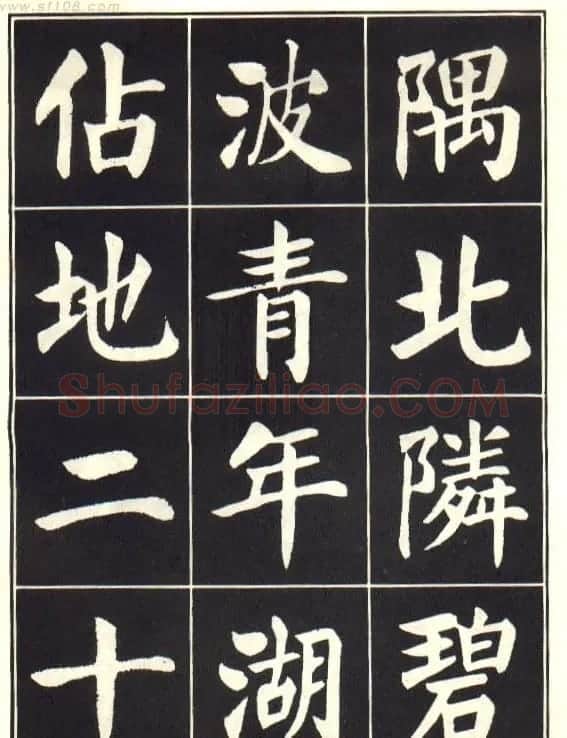 隅北隣碧
波青年湖
佔地二十
www.sf108.com
Shufaziliao.COM